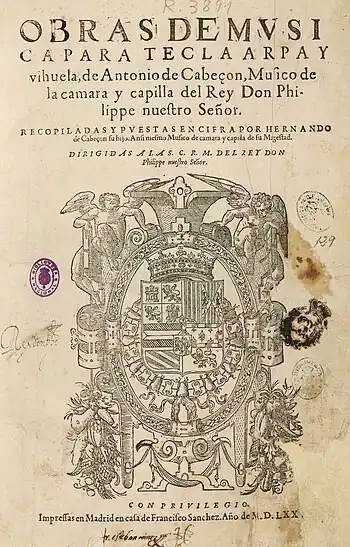 R.3891
OBRAS DE MVSI
CA PARA TECLA ARPA Y
vihuela, de Antonio de Cabeçon, Musico de
la camara y capilla del Rey Don Phi-
lippe nuestro Señor.
RECOPILADAS Y PVESTAS EN CIFRA POR HERNANDO
de Cabeçon su hijo. Ansi mesmo Musico de camara y capilla de su Magestad.
DIRIGIDAS A LA S. C. R. M. DEL REY DON
Philippe nuestro Señor.
139
CON PRIVILEGIO.
Impressas en Madrid en casa de Francisco Sanchez. Año de M. D. LXX